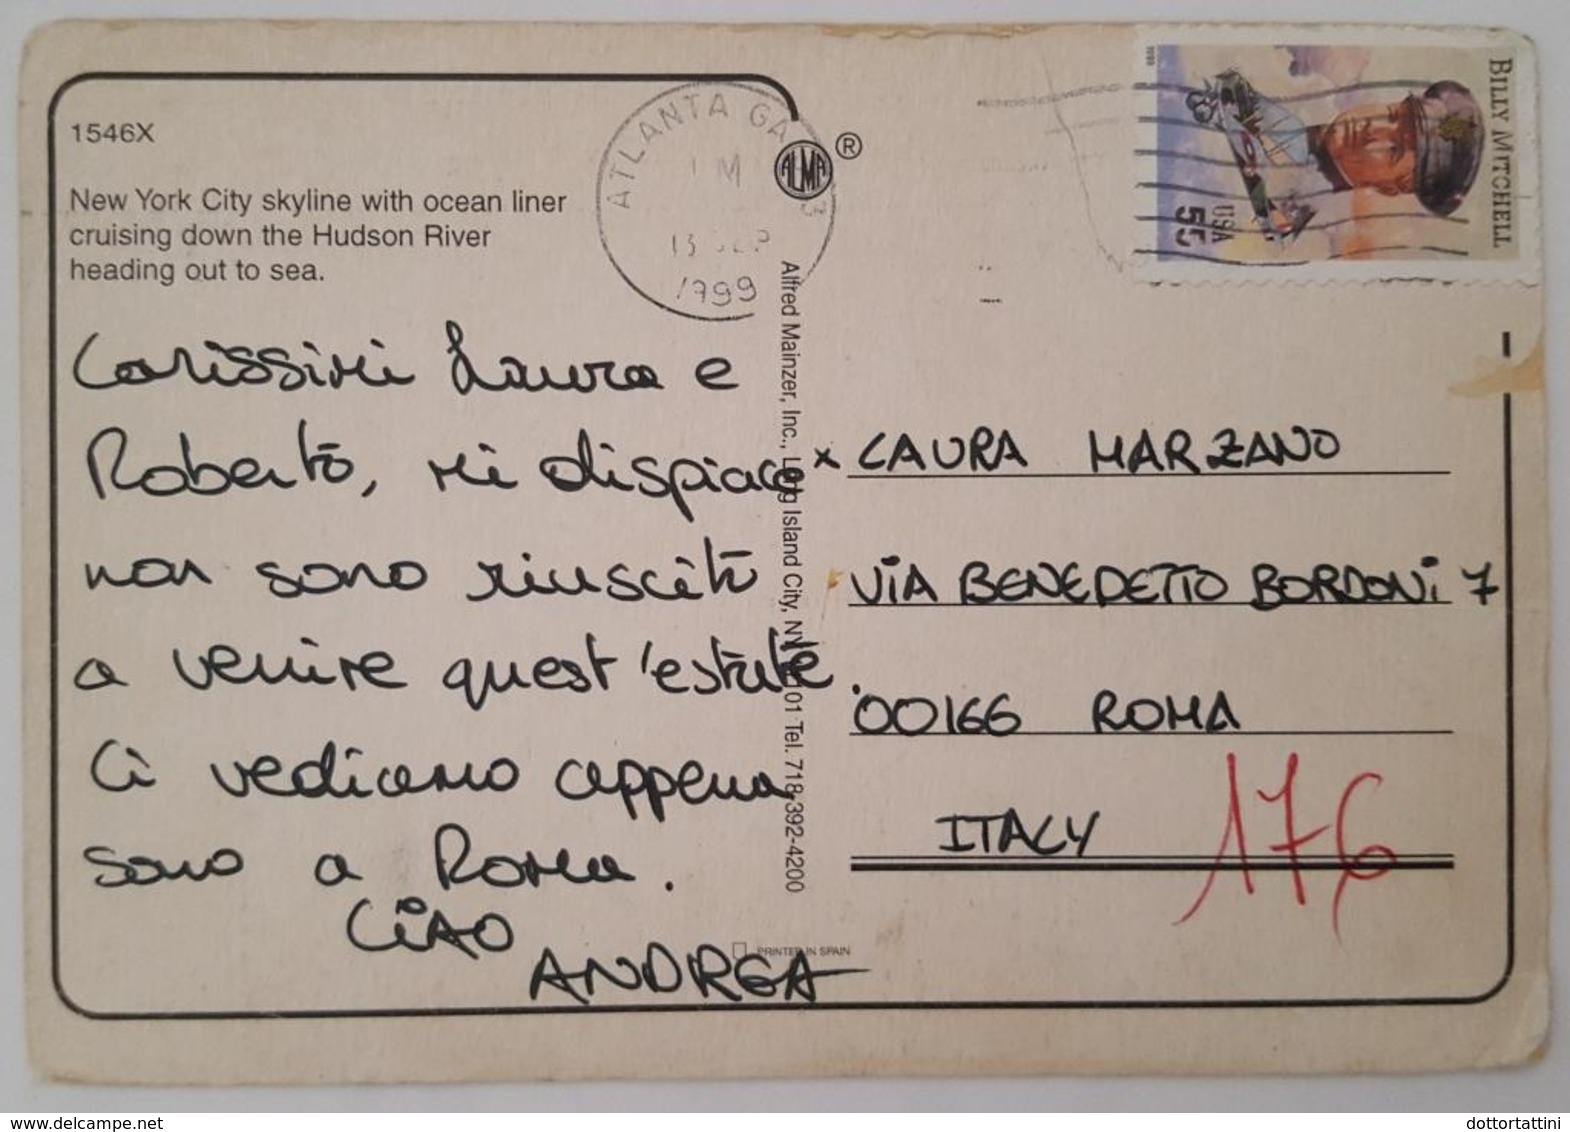 1546X
New York City skyline with ocean liner
cruising down the Hudson River
heading out to sea.
ATLANTA GA
13 SEP
1999
ALMA ®
BILLY MITCHELL
USA
55
1999
Alfred Mainzer, Inc., Long Island City, NY 11101 Tel. 718-392-4200
Carissimi Laura e
Roberto, mi dispiace
non sono riuscito
a venire quest'estate
Ci vediamo appena
sono a Roma.
CIAO
ANDREA
x LAURA MARZANO
VIA BENEDETTO BORDONI 7
00166 ROMA
ITALY
176
PRINTED IN SPAIN
www.delcampe.net
dottortattini